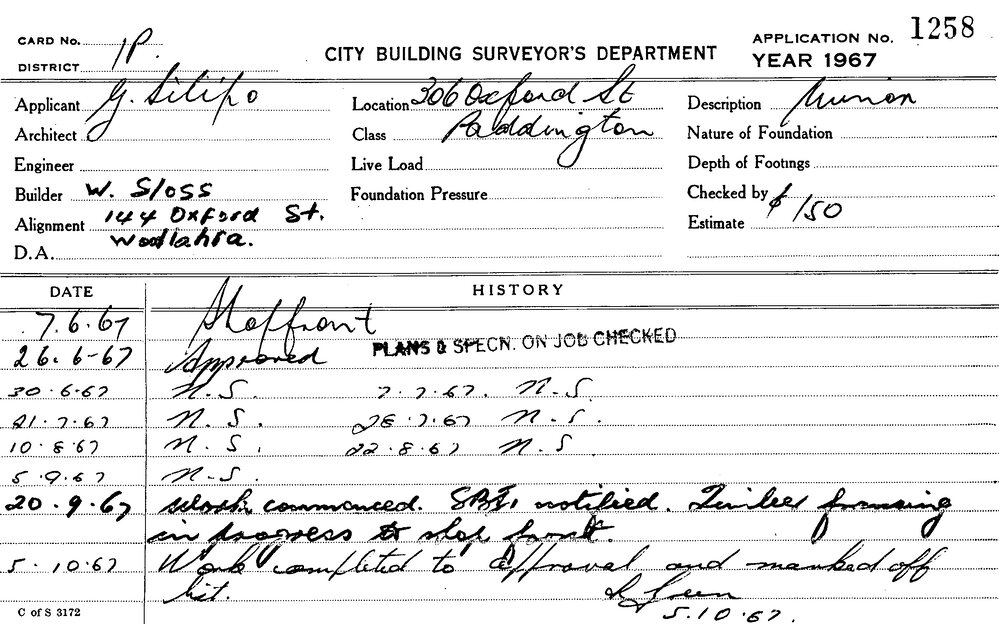 CARD No. 1P.
DISTRICT
CITY BUILDING SURVEYOR'S DEPARTMENT
APPLICATION No. 1258
YEAR 1967
Applicant G. Silipo
Location 306 Oxford St
Description Minor
Architect
Class Paddington
Nature of Foundation
Engineer
Live Load
Depth of Footings
Builder W. Sloss
Foundation Pressure
Checked by
Alignment 144 Oxford St.
Estimate $150
Woollahra.
D.A.
DATE HISTORY
7.6.67 Shopfront
26.6-67 Approved PLANS & SPECN. ON JOB CHECKED
30.6.67 N.S. 7.7.67. N.S.
21.7.67 N.S. 28.7.67 N.S.
10.8.67 N.S. 22.8.67 N.S
5.9.67 N.S.
20.9.67 Work commenced. notified. Timber framing
in progress to shop front.
5.10.67 Work completed to approval and marked off
list.
5.10.67.
C of S 3172